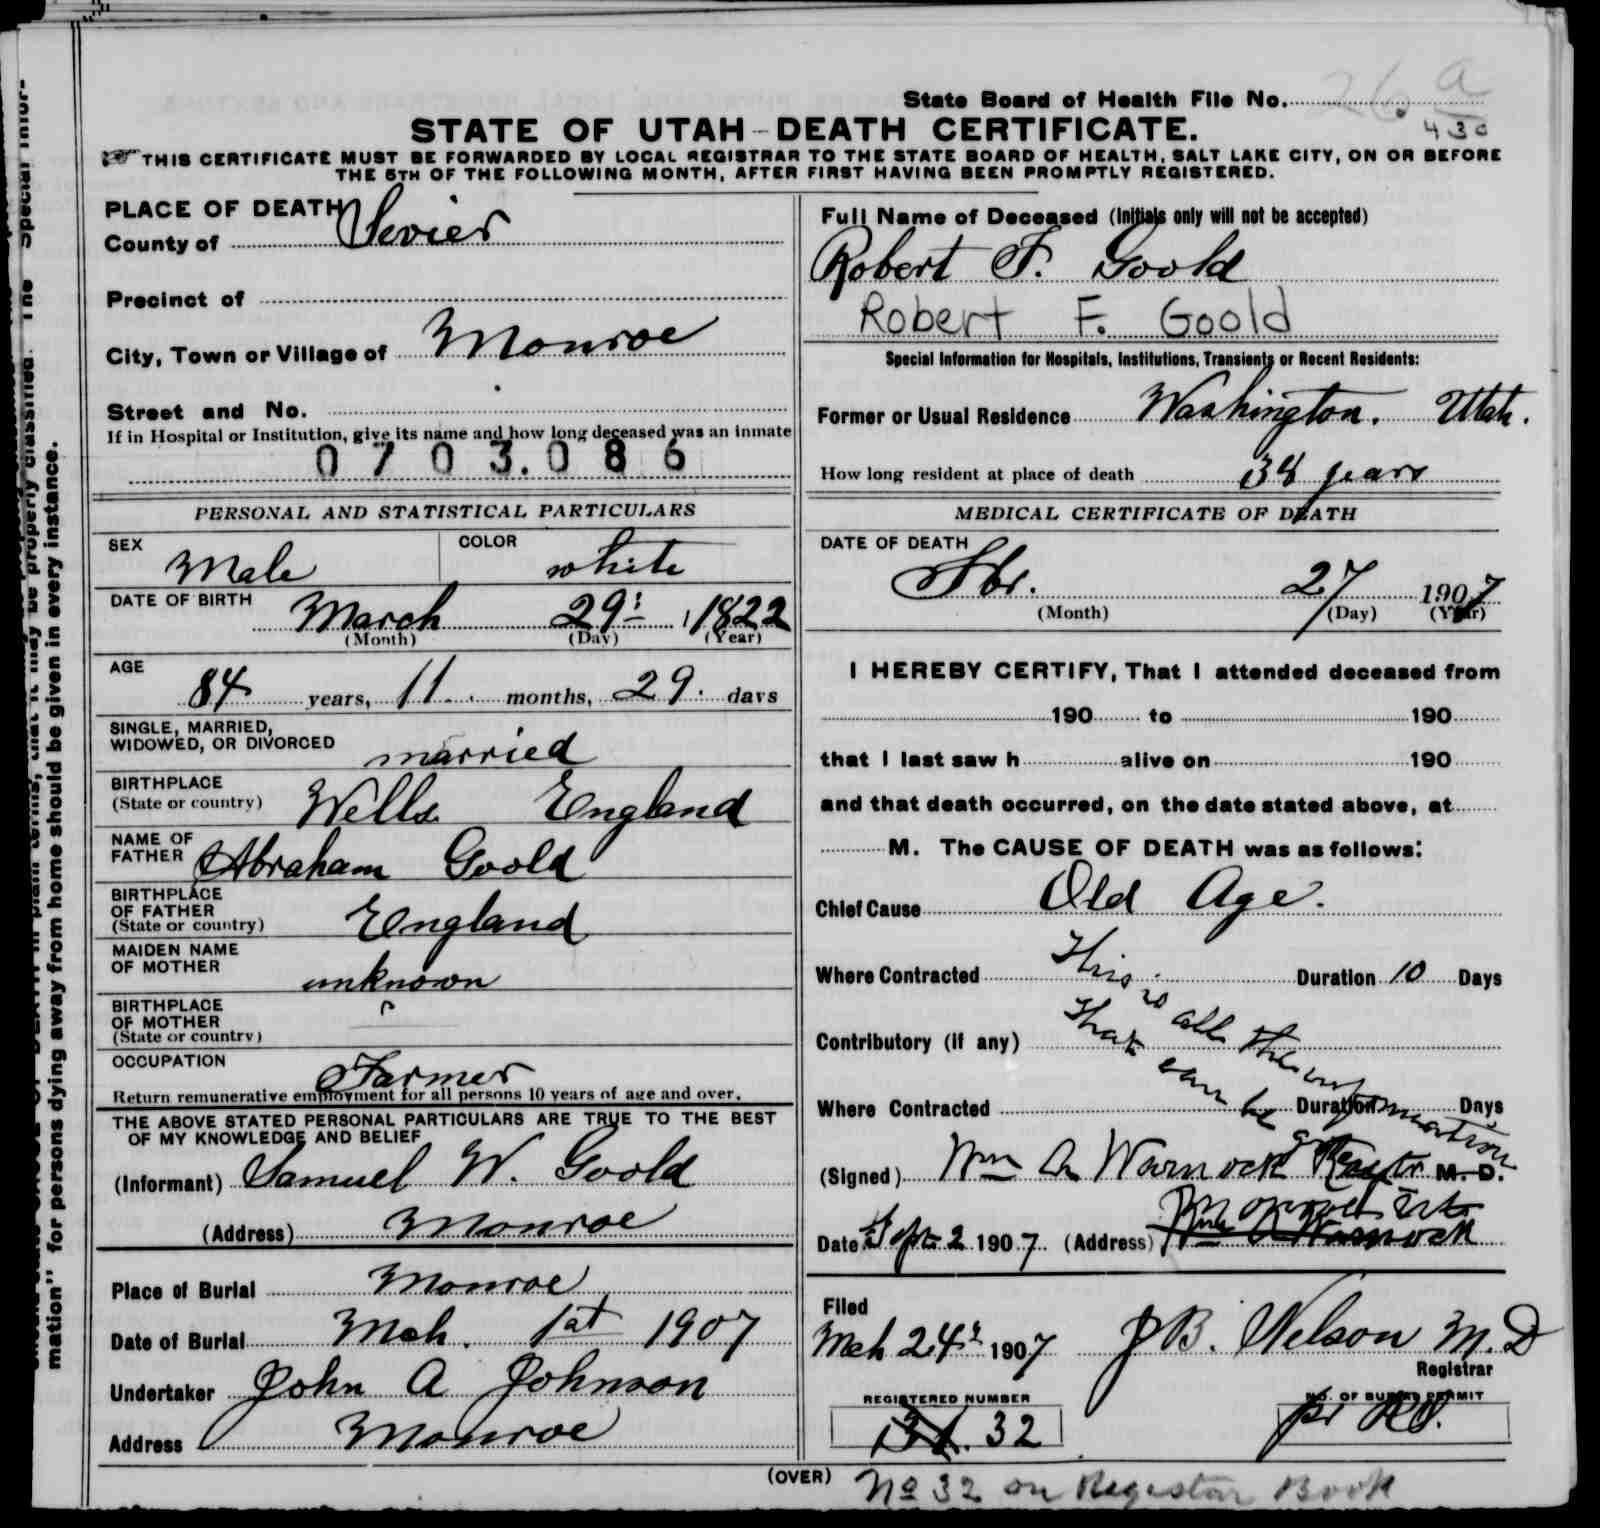 26 a
State Board of Health File No.
430
STATE OF UTAH - DEATH CERTIFICATE.
THIS CERTIFICATE MUST BE FORWARDED BY LOCAL REGISTRAR TO THE STATE BOARD OF HEALTH, SALT LAKE CITY, ON OR BEFORE
THE 5TH OF THE FOLLOWING MONTH, AFTER FIRST HAVING BEEN PROMPTLY REGISTERED.
PLACE OF DEATH
County of Sevier
Precinct of
City, Town or Village of Monroe
Street and No.
If in Hospital or Institution, give its name and how long deceased was an inmate
0703.086
PERSONAL AND STATISTICAL PARTICULARS
SEX Male COLOR white
DATE OF BIRTH March 29: 1822
(Month) (Day) (Year)
AGE 84 years, 11 months, 29. days
SINGLE, MARRIED,
WIDOWED, OR DIVORCED married
BIRTHPLACE
(State or country) Wells England
NAME OF
FATHER Abraham Goold
BIRTHPLACE
OF FATHER
(State or country) England
MAIDEN NAME
OF MOTHER unknown
BIRTHPLACE
OF MOTHER
(State or country)
OCCUPATION Farmer
Return remunerative employment for all persons 10 years of age and over.
THE ABOVE STATED PERSONAL PARTICULARS ARE TRUE TO THE BEST
OF MY KNOWLEDGE AND BELIEF
(Informant) Samuel W. Goold
(Address) Monroe
Place of Burial Monroe
Date of Burial Mch. 1st 1907
Undertaker John A Johnson
Address Monroe
Full Name of Deceased (Initials only will not be accepted)
Robert F. Goold
Robert F. Goold
Special Information for Hospitals, Institutions, Transients or Recent Residents:
Former or Usual Residence Washington. Utah.
How long resident at place of death 38 years
MEDICAL CERTIFICATE OF DEATH
DATE OF DEATH
Fbr. 27 1907
(Month) (Day) (Year)
I HEREBY CERTIFY, That I attended deceased from
190 to 190
that I last saw h alive on 190
and that death occurred, on the date stated above, at
M. The CAUSE OF DEATH was as follows:
Chief Cause Old Age.
Where Contracted Duration 10 Days
Contributory (if any)
Where Contracted Duration Days
This is all the information
that can be got
(Signed) Wm A Warnock Regstr M. D.
Date Sept 2 1907. (Address) Monroe Utah
Wm A Warnock
Filed
Mch 24 1907 J B. Nelson M. D
Registrar
REGISTERED NUMBER
31. 32
NO. OF BURIAL PERMIT
pr
(OVER)
No 32 on Registar Book
mation" for persons dying away from home should be given in every instance.
it may be properly classified. The "Special Infor-